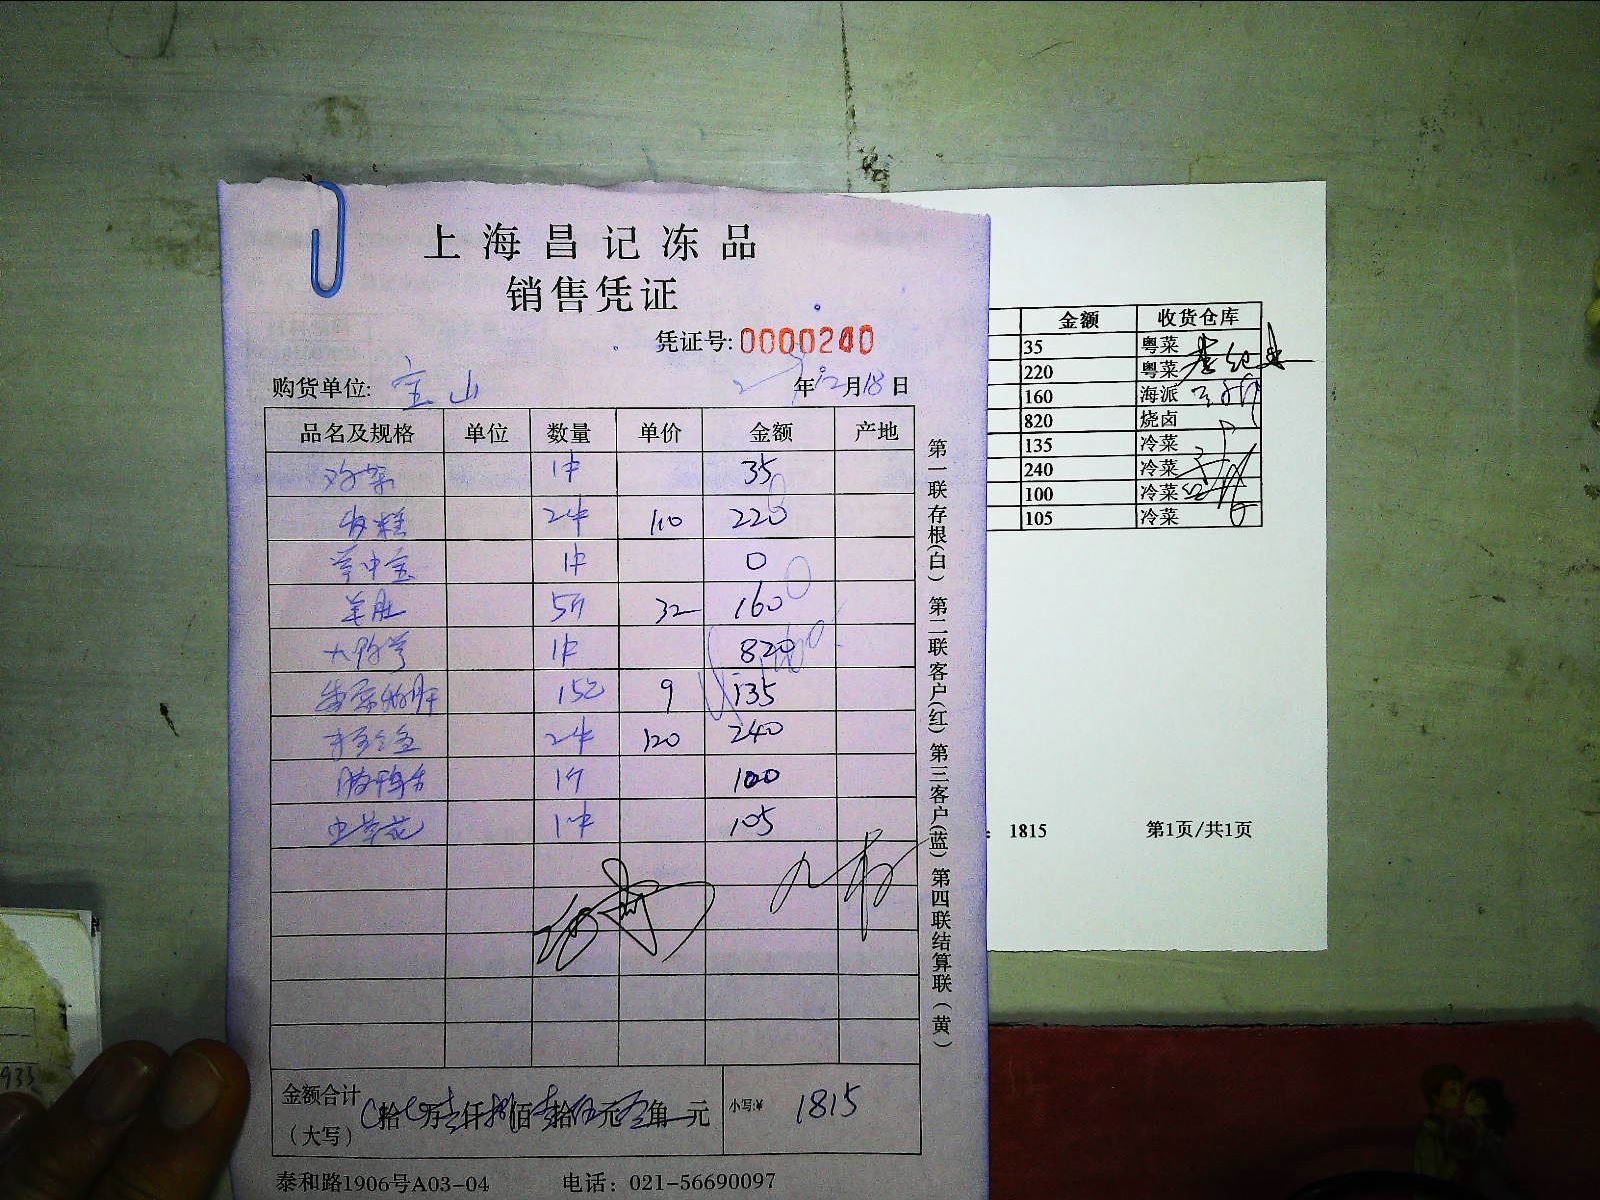 上海昌记冻品
销售凭证
凭证号: 0000240
购货单位: 宝山 年12月18日
品名及规格 单位 数量 单价 金额 产地
1件 35
2件 110 220
1件 0
羊肚 5斤 32 160
1件 820
15包 9 135
2件 120 240
1件 100
虫草花 1件 105
金额合计
(大写) 拾 万壹仟捌佰壹拾伍元 角 元 小写:¥ 1815
泰和路1906号A03-04 电话: 021-56690097
第一联存根(白) 第二联客户(红) 第三客户(蓝) 第四联结算联(黄)
金额 收货仓库
35 粤菜
220 粤菜
160 海派
820 烧卤
135 冷菜
240 冷菜
100 冷菜
105 冷菜
: 1815 第1页/共1页
935